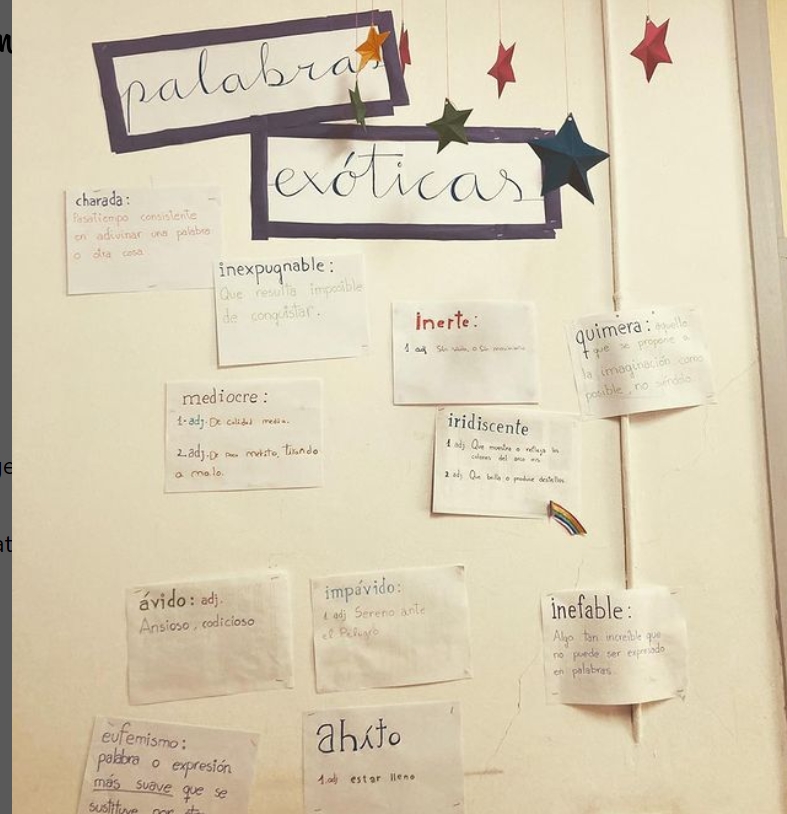 palabras
exóticas
charada:
Pasatiempo consistente
en adivinar una palabra
o otra cosa
inexpugnable:
Que resulta imposible
de conquistar.
inerte:
1 adj Sin vida o Sin movimiento
quimera: aquello
que se propone a
la imaginación como
posible, no siéndolo.
mediocre:
1-adj. De calidad media.
2.adj. De poco mérito, tirando
a malo.
iridiscente
1 adj Que muestra o refleja los
colores del arco iris.
2 adj Que brilla o produce destellos.
ávido: adj.
Ansioso, codicioso
impávido:
1 adj Sereno ante
el Peligro
inefable:
Algo tan increíble que
no puede ser expresado
en palabras.
eufemismo:
palabra o expresión
más suave que se
sustituye por
ahíto
1.adj estar lleno